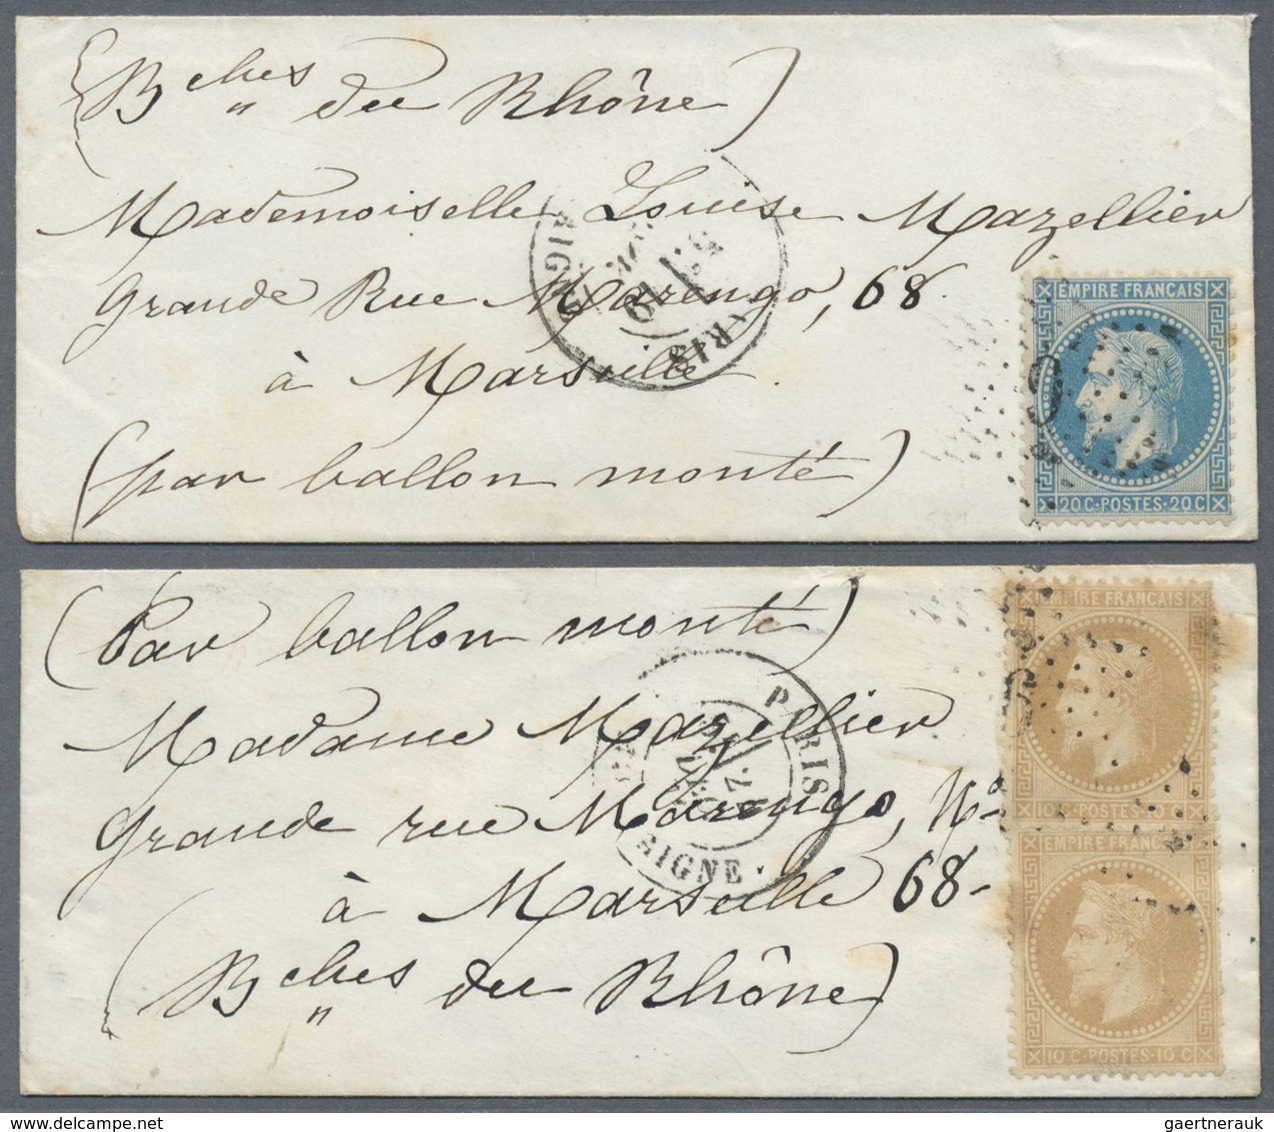 (Bches du Rhône)
Mademoiselle Louise Mazellier
Grande Rue Marengo, 68
à Marseille
(par ballon monté)
EMPIRE FRANÇAIS
20 C · POSTES · 20 C
(Par ballon monté)
Madame Mazellier
Grande rue Marengo, No
à Marseille 68-
(Bches du Rhône)
PARIS
EMPIRE FRANÇAIS
10 C · POSTES · 10 C
EMPIRE FRANC
10 C · POSTES · 10 C
gaertnerauk